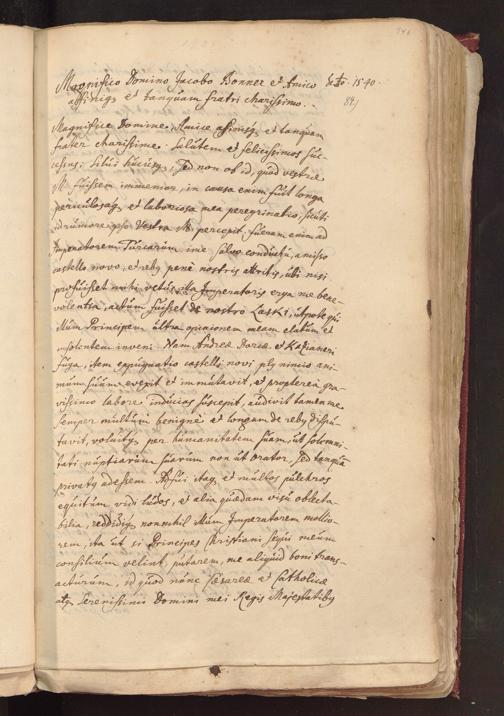 246
Magnifico Domino Jacobo Bonner et Amico 1540
affiniq, et tanquam fratri charissimo.
Magnifice Domine, Amice et tanquam
frater charissime. Salutem et felicissimos suc-
cessus. Silui hucusq, sed non ob id, quod vestræ
M. fuissem immemor, in causa enim fuit longa
periculosaq et laboriosa mea peregrinatio, sicuti
Vestra M. percepit fueram enim ad
Imperatorem Turcarum sine salvo conductu, amisso
castello novo, et reb, penè nostris ubi nisi
profuisset mihi vetus Imperatoris erga me bene-
volentia, actum fuisset de nostro Laski, utpote qui
illum Principem ultra opinionem meam elatum et
insolentem inveni. Nam Andreæ Doriæ et Kazianeri
fuga, item expugnatio castelli novi plus nimio ani-
mum suum evexit et immutavit, et propterea gra-
vissimo labore inducias suscepit, audivit tamen me
semper multum benignè et longam de reb, dispu-
tavit, voluitq, per humanitatem suam, ut solenni-
tati nuptiarum suarum non ut orator, sed tanquam
privatus adessem. Adfui itaq, et multos pulchros
equitum vidi ludos, et alia quædam visu oblecta-
bilia, reddidiq nonnihil illum Imperatorem mollio-
rem, ita ut si Principes Christiani sequi meum
consilium velint, putarem, me aliquid boni trans-
acturum, id quod nunc Cæsareæ et Catholicæ
atq, Serenissimi Domini mei Regis Majestatibus